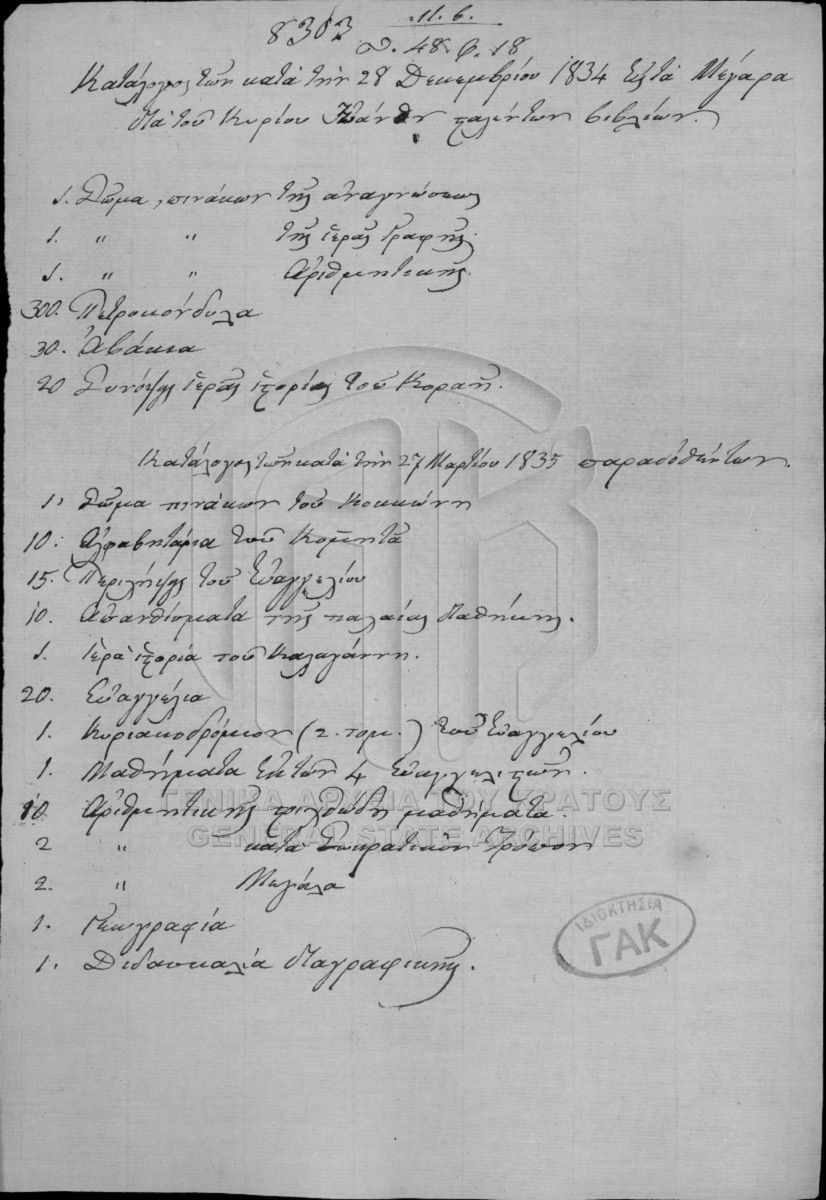 8303
11. 6.
Φ. 48. φ. 18
Κατάλογος τῶν κατὰ τὴν 28 Δεκεμβρίου 1834 εἰς τὰ Μέγαρα
διὰ τοῦ Κυρίου σταλέντων βιβλίων.
1. Σῶμα, πινάκων τῆς ἀναγνώσεως
1. " " τῆς ἱερᾶς Γραφῆς.
1. " " Ἀριθμητικῆς.
300. Πετροκόνδυλα
30. Ἀβάκια
20 Συνόψεις ἱερᾶς ἱστορίας τοῦ Κοραῆ.
Κατάλογος τῶν κατὰ τὴν 27 Μαρτίου 1835 παραδοθέντων.
1. Σῶμα πινάκων τοῦ Κοκκώνη
10. Ἀλφαβητάρια τοῦ Κομητᾶ
15. Περιλήψεις τοῦ Εὐαγγελίου
10. Ἀπανθίσματα τῆς παλαιᾶς διαθήκης.
1. Ἱερὰ ἱστορία τοῦ Καλαγάννη.
20. Εὐαγγέλια
1. Κυριακοδρόμιον (2. τομ.) τοῦ Εὐαγγελίου
1. Μαθήματα ἐκ τῶν 4 Εὐαγγελιστῶν.
10 Ἀριθμητικῆς στιχειώδη μαθήματα.
2 " κατὰ Σωκρατικὸν Τρόπον
2. " Μεγάλα
1. Γεωγραφία
1. Διδασκαλία διαγραφικῆς.
ΓΕΝΙΚΑ ΑΡΧΕΙΑ ΤΟΥ ΚΡΑΤΟΥΣ
GENERAL STATE ARCHIVES
ΙΔΙΟΚΤΗΣΙΑ
ΓΑΚ